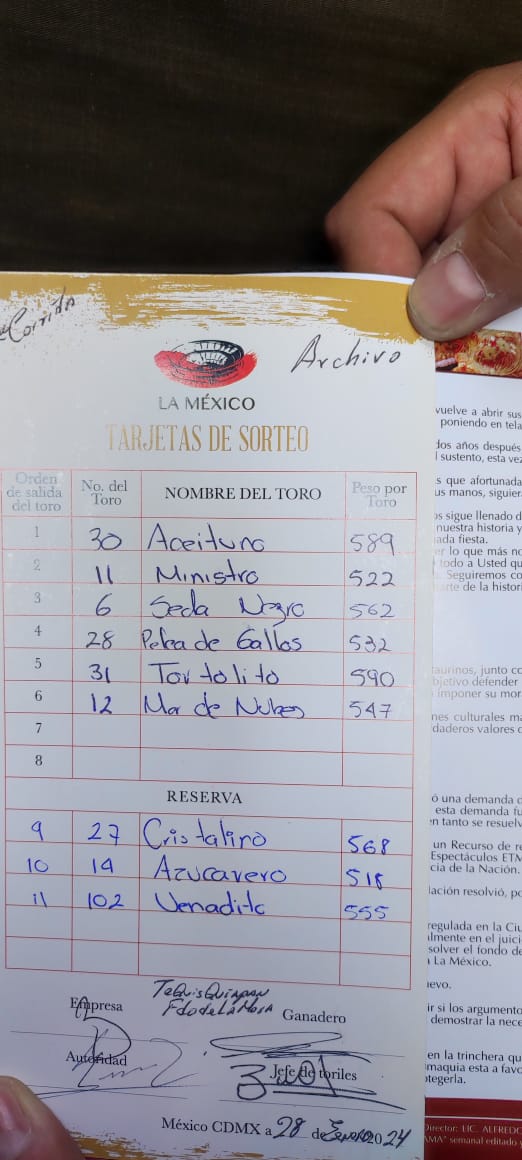 Corrida
Archivo
LA MÉXICO
TARJETAS DE SORTEO
Orden de salida del toro No. del Toro NOMBRE DEL TORO Peso por Toro
1 30 Aceituno 589
2 11 Ministro 522
3 6 Seda Negro 562
4 28 Pelea de Gallos 532
5 31 Tortolito 590
6 12 Mar de Nubes 547
7
8
RESERVA
9 27 Cristalino 568
10 14 Azucarero 518
11 102 Venadito 555
TeQuisQuiapan
Fdo de La Mora
Empresa Ganadero
Autoridad Jefe de toriles
México CDMX a 28 de Enero 2024
vuelve a abrir sus
poniendo en tela
dos años después
l sustento, esta vez
s que afortunada
us manos, siguier
os sigue llenado d
nuestra historia y
ada fiesta.
er lo que más no
todo a Usted qu
Seguiremos co
arte de la histori
taurinos, junto co
bjetivo defender
imponer su mor
nes culturales ma
daderos valores d
ó una demanda d
esta demanda fu
en tanto se resuelv
un Recurso de re
Espectáculos ETM
cia de la Nación.
lación resolvió, po
regulada en la Ciu
almente en el juici
solver el fondo de
La México.
uevo.
ir si los argumento
demostrar la nece
en la trinchera qu
maquia esta a favo
otegerla.
Director: LIC. ALFREDO
AMA" semanal editado